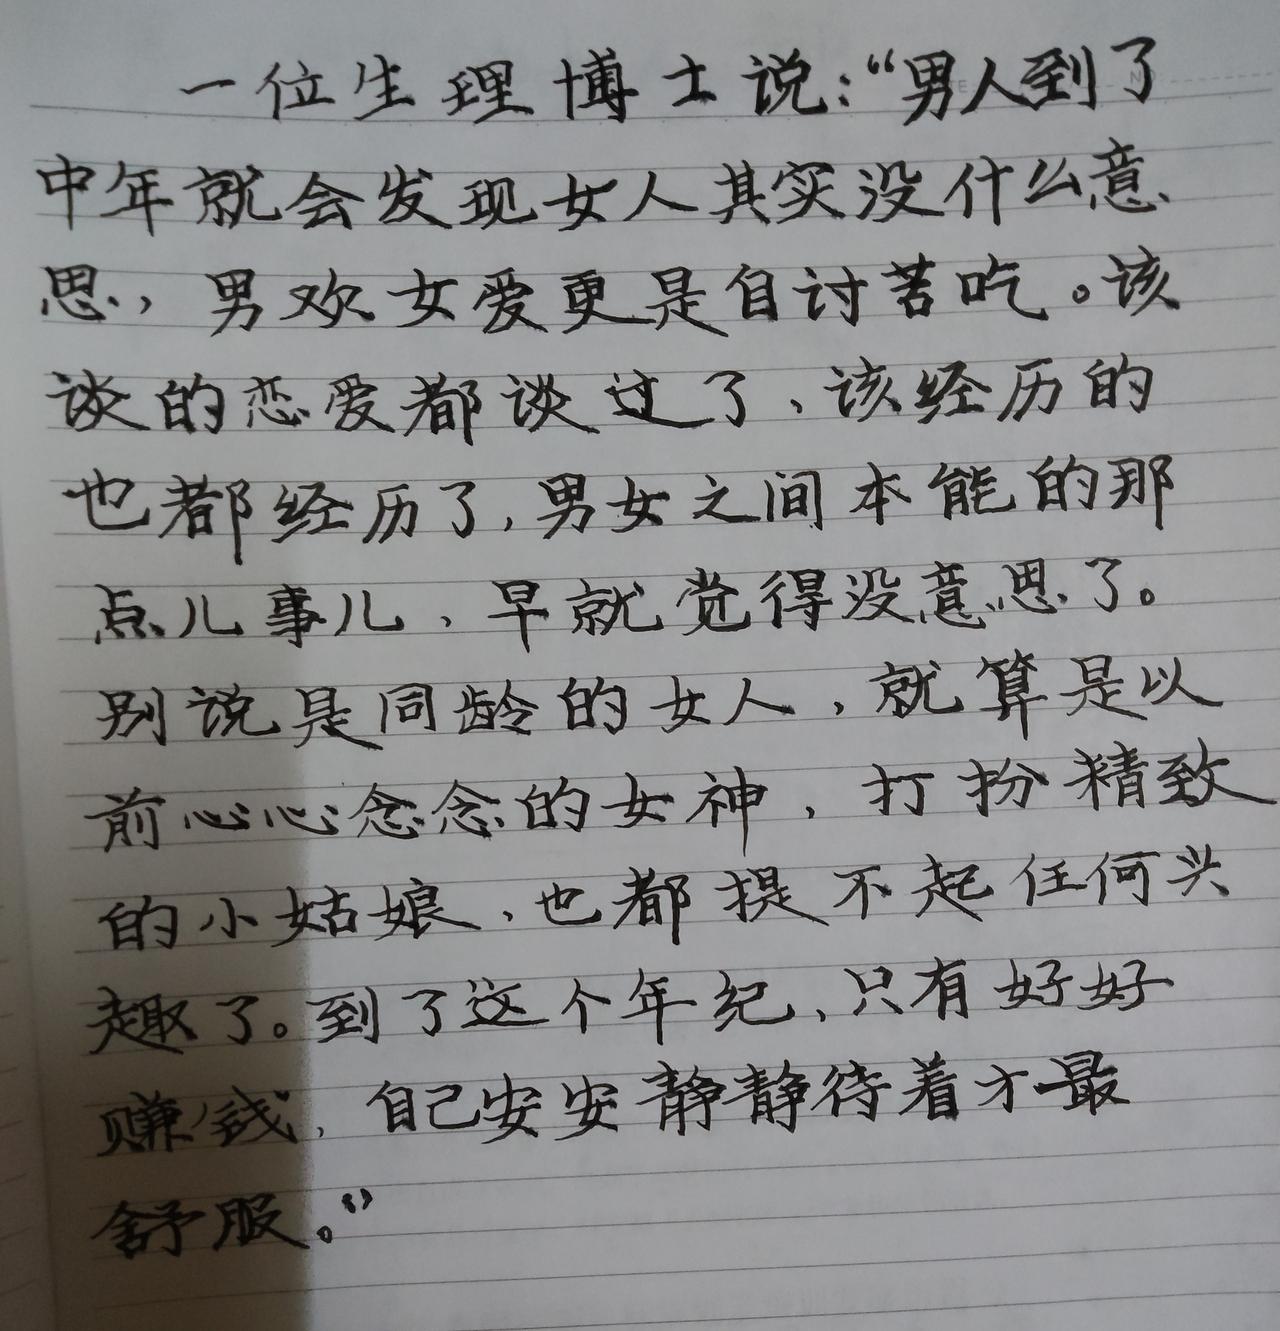 一位生理博士说：“男人到了
中年就会发现女人其实没什么意
思，男欢女爱更是自讨苦吃。该
谈的恋爱都谈过了、该经历的
也都经历了，男女之间本能的那
点儿事儿，早就觉得没意思了。
别说是同龄的女人，就算是以
前心心念念的女神，打扮精致
的小姑娘，也都提不起任何兴
趣了。到了这个年纪、只有好好
赚钱，自己安安静静待着才最
舒服。”